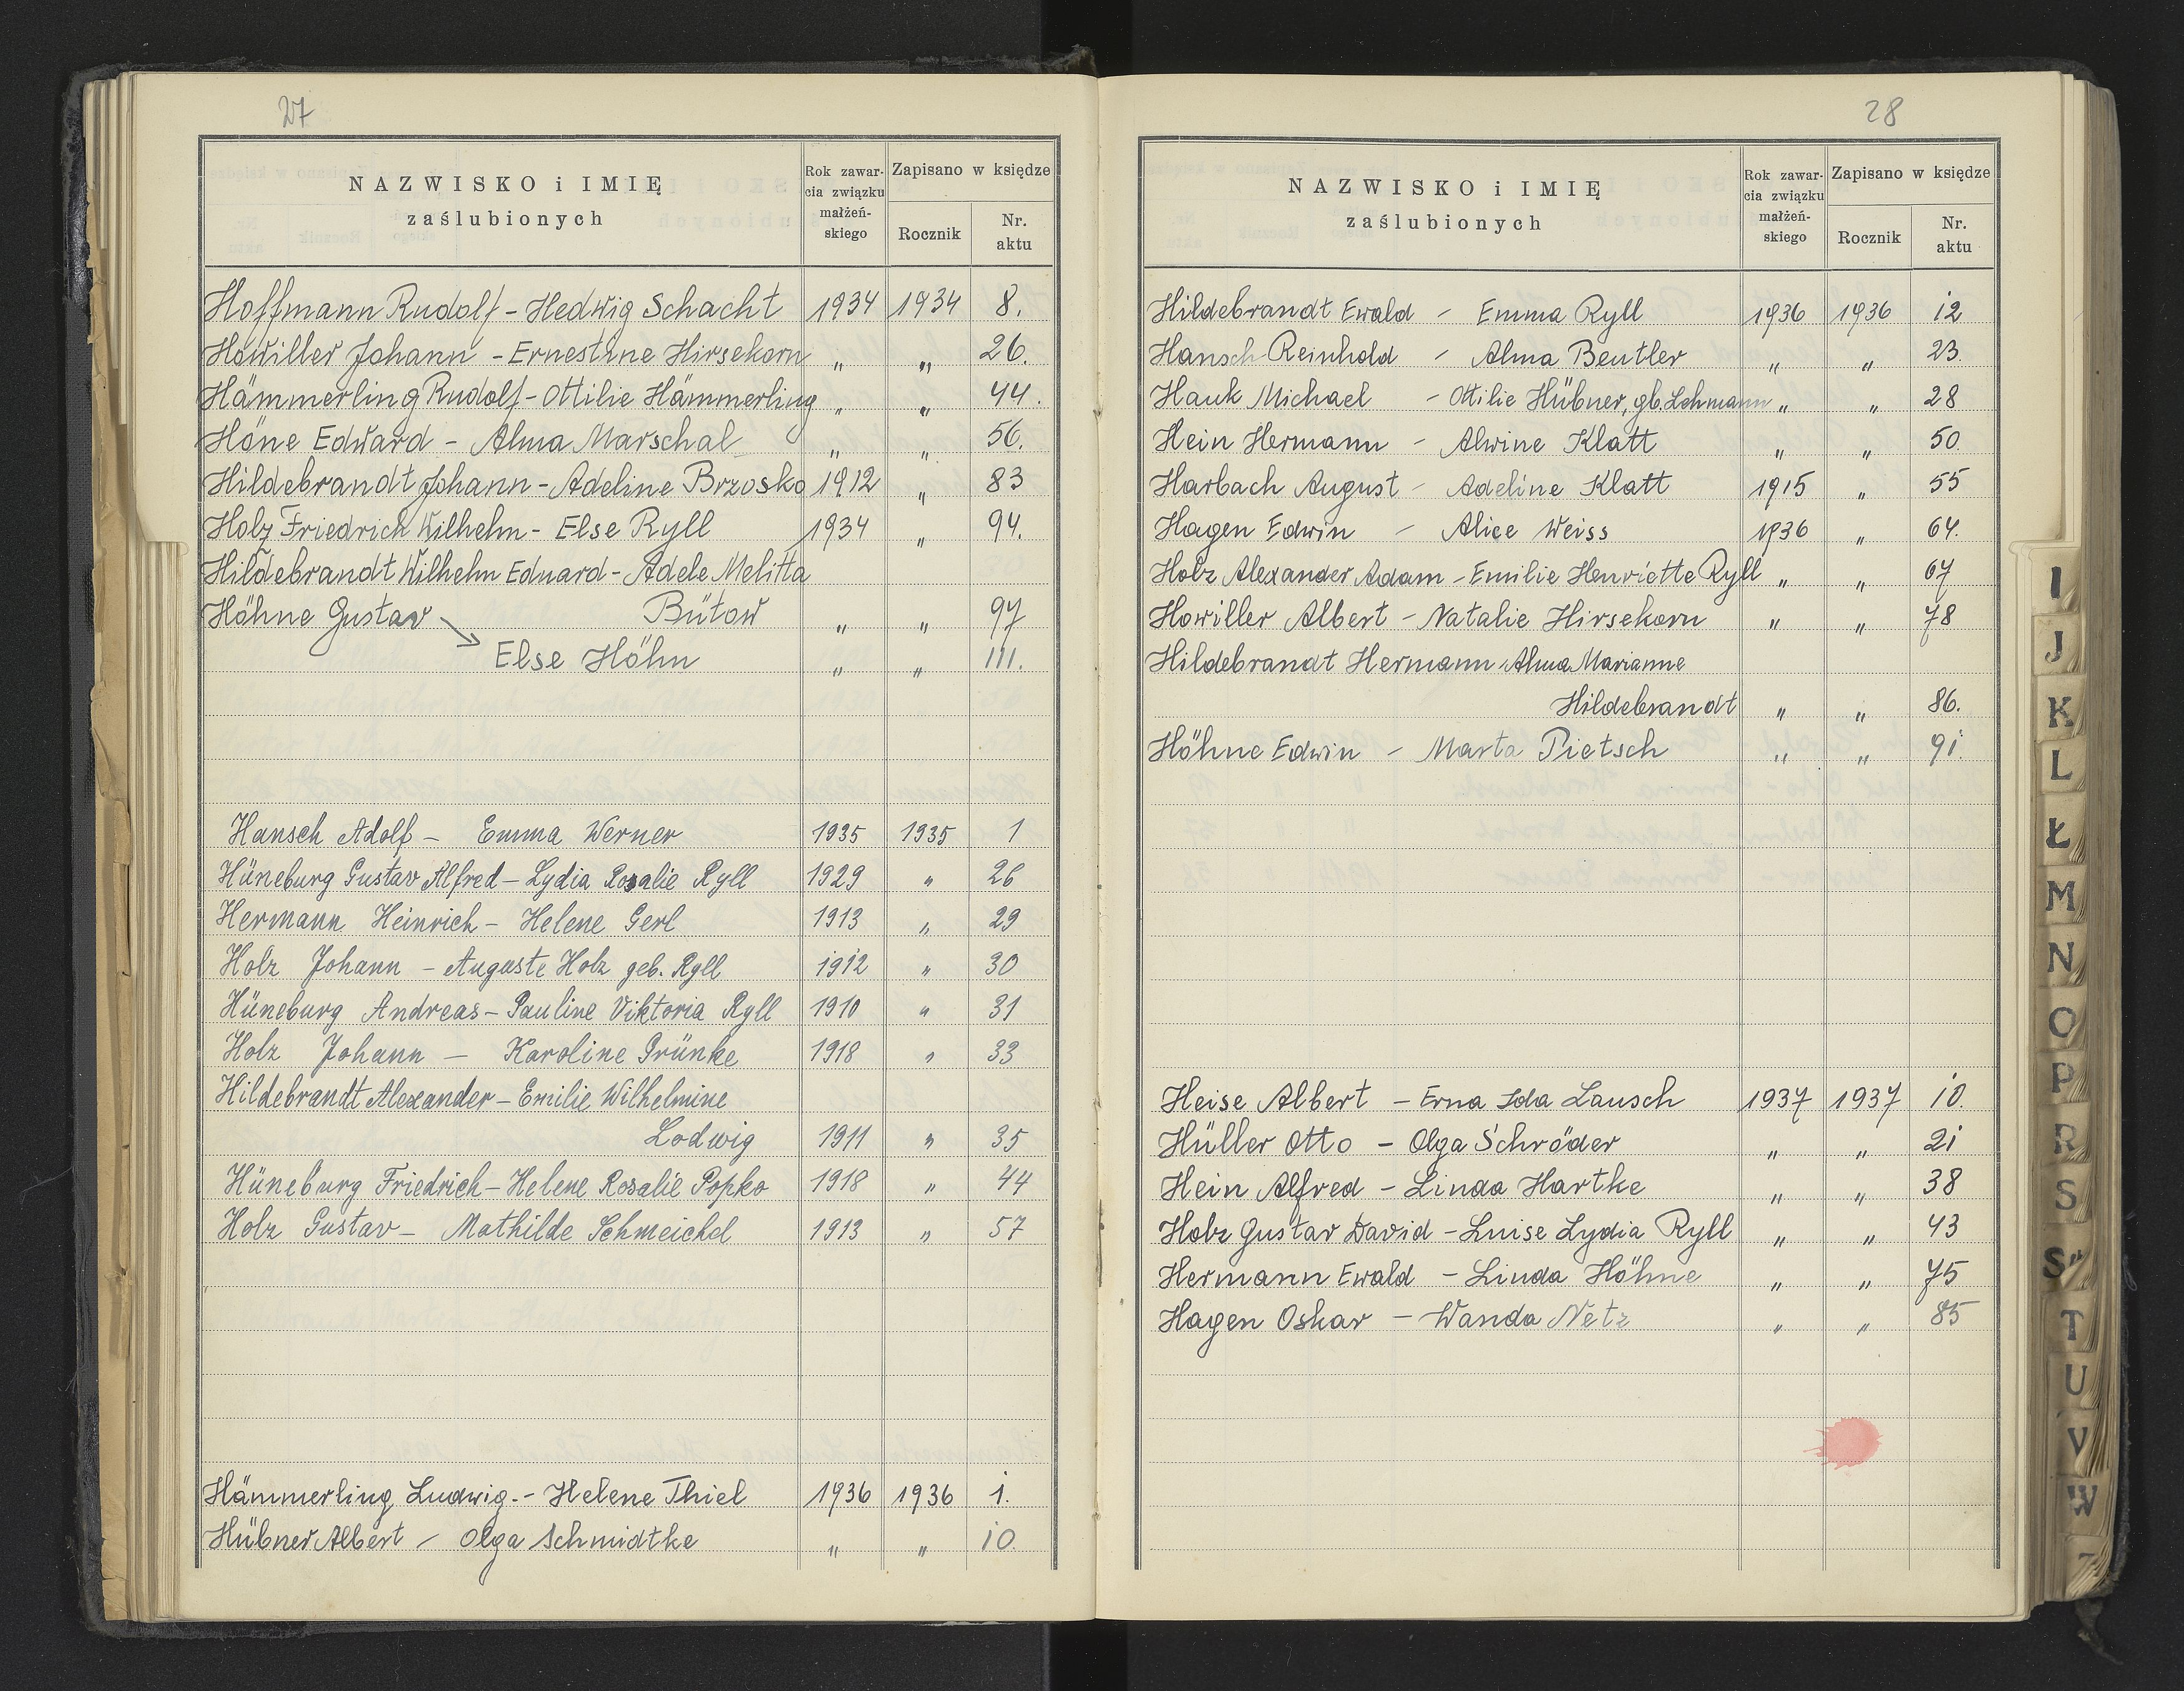 27
NAZWISKO i IMIĘ
zaślubionych
Rok zawar-
cia związku
małżeń-
skiego
Zapisano w księdze
Rocznik
Nr.
aktu
Hoffmann Rudolf - Hedwig Schacht 1934 1934 8.
Howiller Johann - Ernestine Hirsekorn " " 26.
Hämmerling Rudolf - Ottilie Hämmerling " " 44.
Höne Edward - Alma Marschal " " 56.
Hildebrandt Johann - Adeline Brzosko 1912 " 83
Holz Friedrich Wilhelm - Else Ryll 1934 " 94.
Hildebrandt Wilhelm Eduard - Adele Melitta
Höhne Gustav Bütow " " 97
Else Höhn " " 111.
Hansch Adolf - Emma Werner 1935 1935 1
Hüneburg Gustav Alfred - Lydia Rosalie Ryll 1929 " 26
Hermann Heinrich - Helene Gerl 1913 " 29
Holz Johann - Auguste Holz geb. Ryll 1912 " 30
Hüneburg Andreas - Pauline Viktoria Ryll 1910 " 31
Holz Johann - Karoline Grünke 1918 " 33
Hildebrandt Alexander - Emilie Wilhelmine
Lodwig 1911 " 35
Hüneburg Friedrich - Helene Rosalie Popko 1918 " 44
Holz Gustav - Mathilde Schmeichel 1913 " 57
Hämmerling Ludwig. - Helene Thiel 1936 1936 1.
Hübner Albert - Olga Schmidtke " " 10.
28
NAZWISKO i IMIĘ
zaślubionych
Rok zawar-
cia związku
małżeń-
skiego
Zapisano w księdze
Rocznik
Nr.
aktu
Hildebrandt Ewald - Emma Ryll 1936 1936 12
Hansch Reinhold - Alma Beutler " " 23.
Hauk Michael - Ottilie Hübner, gb. Lehmann " " 28
Hein Hermann - Alwine Klatt " " 50.
Harbach August - Adeline Klatt 1915 " 55
Hagen Edwin - Alice Weiss 1936 " 64.
Holz Alexander Adam - Emilie Henriette Ryll " " 67
Howiller Albert - Natalie Hirsekorn " " 78
Hildebrandt Hermann - Alma Marianne
Hildebrandt " " 86.
Höhne Edwin - Marta Pietsch " " 91.
Heise Albert - Erna Ida Lausch 1937 1937 10.
Hüller Otto - Olga Schröder " " 21
Hein Alfred - Linda Hartke " " 38
Holz Gustav David - Luise Lydia Ryll " " 43
Hermann Ewald - Linda Höhne " " 75
Hagen Oskar - Wanda Netz " " 85
I
J
K
L
Ł
M
N
O
P
R
S
T
U
V
W
Z